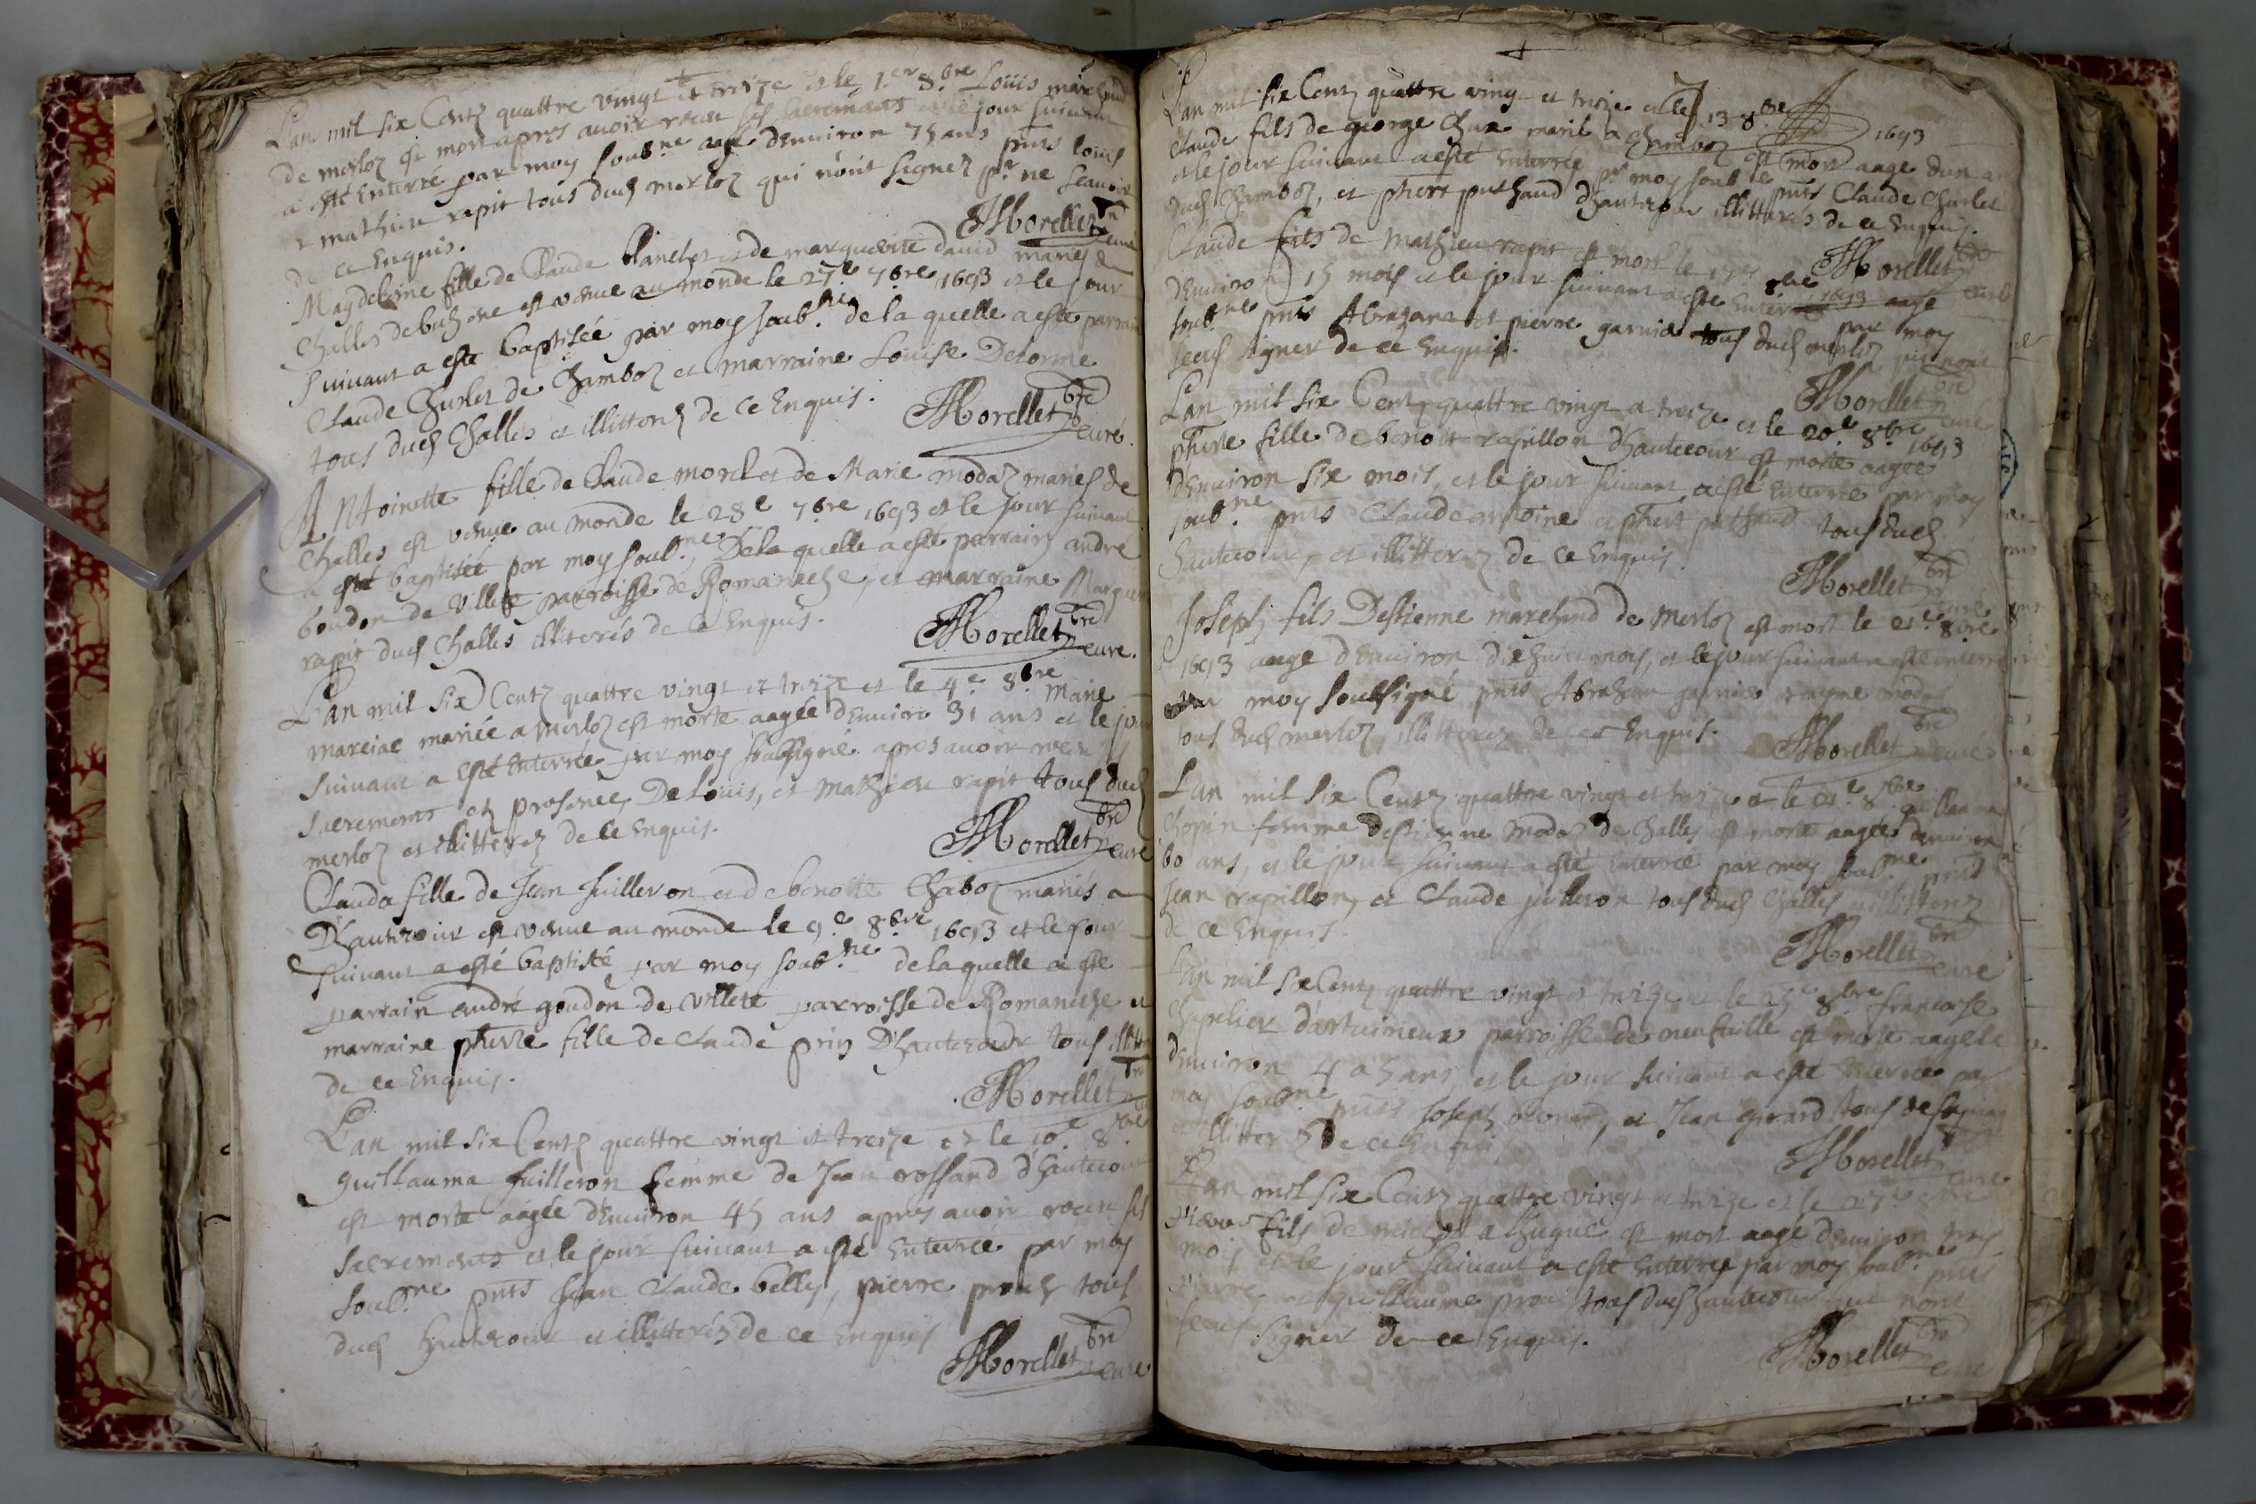 Lan mil six Centz quattre vingt et treize et le 1er 8bre Louis marchand
de merloz est mort apres avoir receu ses sacremants et le jour suivant
a esté Enterré par moy soubne agé denviron 75 ans pnts louis
et mathieu rapit tous duch merloz qui nont signez pr ne scavoir
de ce Enquis. Morellet
Magdeleine fille de Claude blanchet et de marguerite david mariés de
Challes debuhone est venue au monde le 27e 7bre 1693 et le jour
suivant a esté baptisée par moy soubne de la quelle a esté parrain
Claude Churlet de Chamboz et marraine Louise Delorme
tous duch Challes et illitterez de ce Enquis. Morellet bre cure.
Antoinette fille de Claude morel et de Marie modaz mariés de
Challes est venue au monde le 28e 7bre 1693 et le jour suivant
a esté baptisée par moy soubne, De la quelle a esté parrain andré
goudon de villette parroisse de Romaneche, et marraine Margueri
rapit duch Challes illiterés de ce Enquis. Morellet bre cure.
Lan mil six Centz quattre vingt et treize et le 4e 8bre Marie
mareial mariée a merloz est morte aagée denviro 31 ans et le jour
suivant a esté enterrée par moy soussigné apres avoir receu
sacrements en presence De Louis, et Mathieu rapit tous duch
merloz et illitterez de ce Enquis. Morellet bre cure
Clauda fille de Jean Juilleron et de benoite Chaboz mariés a
Dhautecour est venue au monde le 9e 8bre 1693 et le jour
suivant a esté baptisée par moy soubne de la quelle a esté
parrain andré goudon de villette parroisse de Romaneche et
marraine pierre fille de Claude prin Dhautecour tous illitte
de ce Enquis. Morellet
Lan mil six Centz quattre vingt et treize et le 10e 8bre
guillauma Juilleron femme de Jean rossand dhautecour
est morte aagée denviron 45 ans apres avoir receu ses
sacremants et le jour suivant a esté enterrée par moy
soubne pnts Jean Claude belley, pierre proux tous
duch hautecour et illitteréz de ce Enquis
Morellet bre cure
Lan mil six Centz quattre vingt et treize et le 13 8bre 1693
Claude fils de george Chux marié a Chamboz est mort aage dun an
et le jour suivant a esté enterrée pr moy soubne pnts Claude Churlet
duch Chamboz, et pierre puthaud dhautecour illitterés de ce Enquis.
Claude fils de Mathieu rapit est mort le 8bre 1693 aagé Morellet bre
denviron 15 mois et le jour suivant a esté Enterré par moy
soubne pnts Abraham et pierre garnier tous duch merloz qui nont
sceus signer de ce Enquis. Morellet bre cure
Lan mil six Centz quattre vingt et treize et le 20e 8bre 1693
pierre fille de benoit rapillon dhautecour est morte aagée
denviron six mois, et le jour suivant a esté enterrée par moy
soubne pnts Claude antoine et pierre puthaud tous duch
hautecour, et illitterez de ce Enquis. Morellet bre cure
Joseph fils Destienne marchand de Merloz est mort le 21e 8bre
1693 aage denviron dixhuict mois, et le jour suivant a esté enterré
par moy soussigné pnts Abraham garnier
tous duch merloz illitterez de ce Enquis. Morellet bre curé
Lan mil six Centz quattre vingt et treize et le 21e 8bre guillauma
Chopin femme destienne modaz de Challes est morte aagée denviron
60 ans, et le jour suivant a esté enterrée par moy soubne pnts
Jean rapillon, et Claude juilleron tous duch Challes et illitterez
de ce Enquis. Morellet bre cure
Lan mil six Centz quattre vingt et treize et le 25e 8bre francoise
Chapelier parroisse de neufville est morte aagée
denviron 4 a 5 ans, et le jour suivant a esté enterrée par
moy soubne pnts Joseph, et Jean girard tous
et illitterz de ce Enquis Morellet cure
Lan mil six Centz quattre vingt et treize et le 27e
fils de est mort aage denviron trois
mois et le jour suivant a esté enterrée par moy soubne pnts
pierre et guillaume proux tous duch hautecour qui nont
sceus signer de ce Enquis. Morellet bre cure